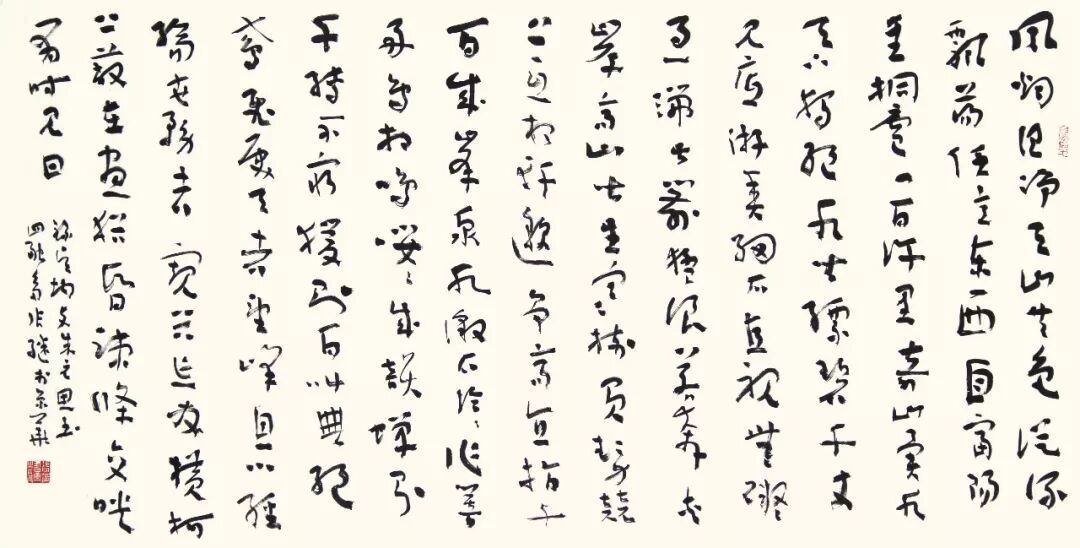 風煙俱淨天山共色從流
飄蕩任意東西自富陽
至桐廬一百許里奇山異水
天下獨絕水皆縹碧千丈
見底游魚細石直視無礙
急湍甚箭猛浪若奔夾
岸高山皆生寒樹負勢競
上互相軒邈爭高直指千
百成峯泉水激石泠泠作響
好鳥相鳴嚶嚶成韻蟬則
千轉不窮猨則百叫無絕
鳶飛戾天者望峰息心經
綸世務者窺谷忘反橫柯
上蔽在晝猶昏疎條交映
有時見日
錄吳均與朱元思書
四融齋張繼書京華